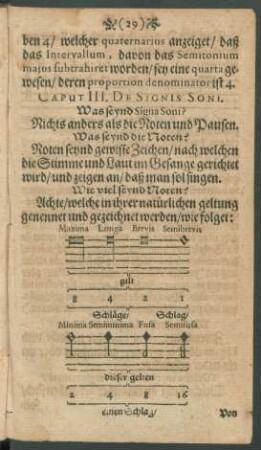 (29)
ben 4/ welcher quaternarius anzeiget/ daß
das Intervallum, davon das Semitonium
majus subtrahiret worden/ sey eine quarta ge-
wesen/ deren proportion denominator ist 4.
CAPUT III. DE SIGNIS SONI.
Was seynd Signa Soni?
Nichts anders als die Noten und Pausen.
Was seynd die Noten?
Noten seynd gewisse Zeichen/ nach welchen
die Stimme und Laut im Gesange gerichtet
wird/ und zeigen an/ daß man sol singen.
Wie viel seynd Noten?
Achte/ welche in ihrer natürlichen geltung
genennet und gezeichnet werden/ wie folget:
Maxima Longa Brevis Semibrevis
gilt
8 4 2 1
Schläge/ Schlag/
Minima Semiminima Fusa Semifusa
dieser gehen
2 4 8 16
einen Schlag/
Von